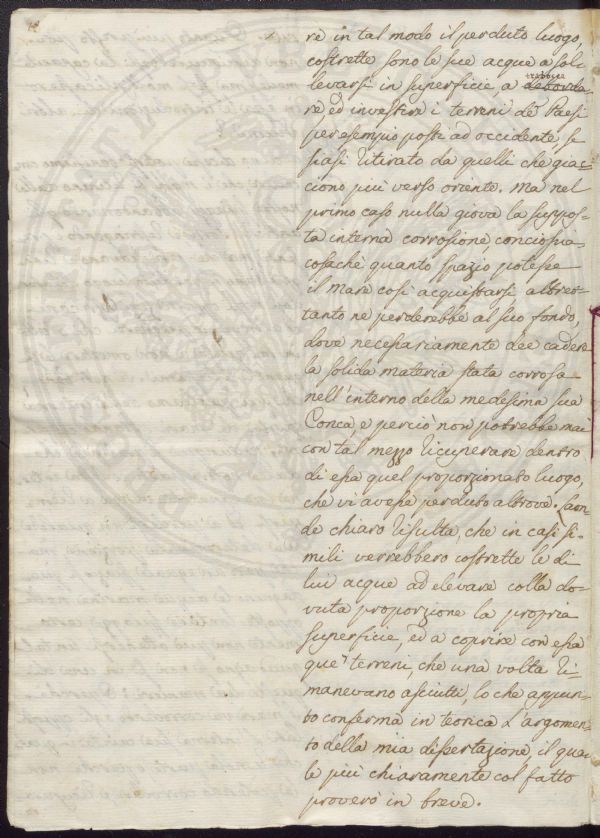 re in tal modo il perduto luogo,
costrette sono le sue acque a sol-
levarsi in superficie, a trabocca
re ed investire i terreni de' Paesi
per esempio posti ad occidente, se
siasi ritirato da quelli che giac-
ciono piu verso oriente. Ma nel
primo caso nulla giova la suppos-
ta interna corrosione conciosia
cosache quanto spazio potesse
il mare così acquistarsi altret-
tanto ne perderebbe al suo fondo,
dove necessariamente dee cadere
la solida materia stata corrosa
nell'interno della medesima sua
Conca, e perciò non potrebbe mai
con tal mezzo ricuperare dentro
di essa quel proporzionato luogo,
che vi avesse perduto altrove. Laon-
de chiaro risulta, che in casi si-
mili verrebbero costrette le di
lui acque ad elevare colla do-
vuta proporzione la propria
superficie, ed a coprire con essa
que' terreni, che una volta ri-
manevano asciutti, lo che appun-
to conferma in teorica l'argomen-
to della mia dissertazione, il qua-
le più chiaramente col fatto
proverò in breve.